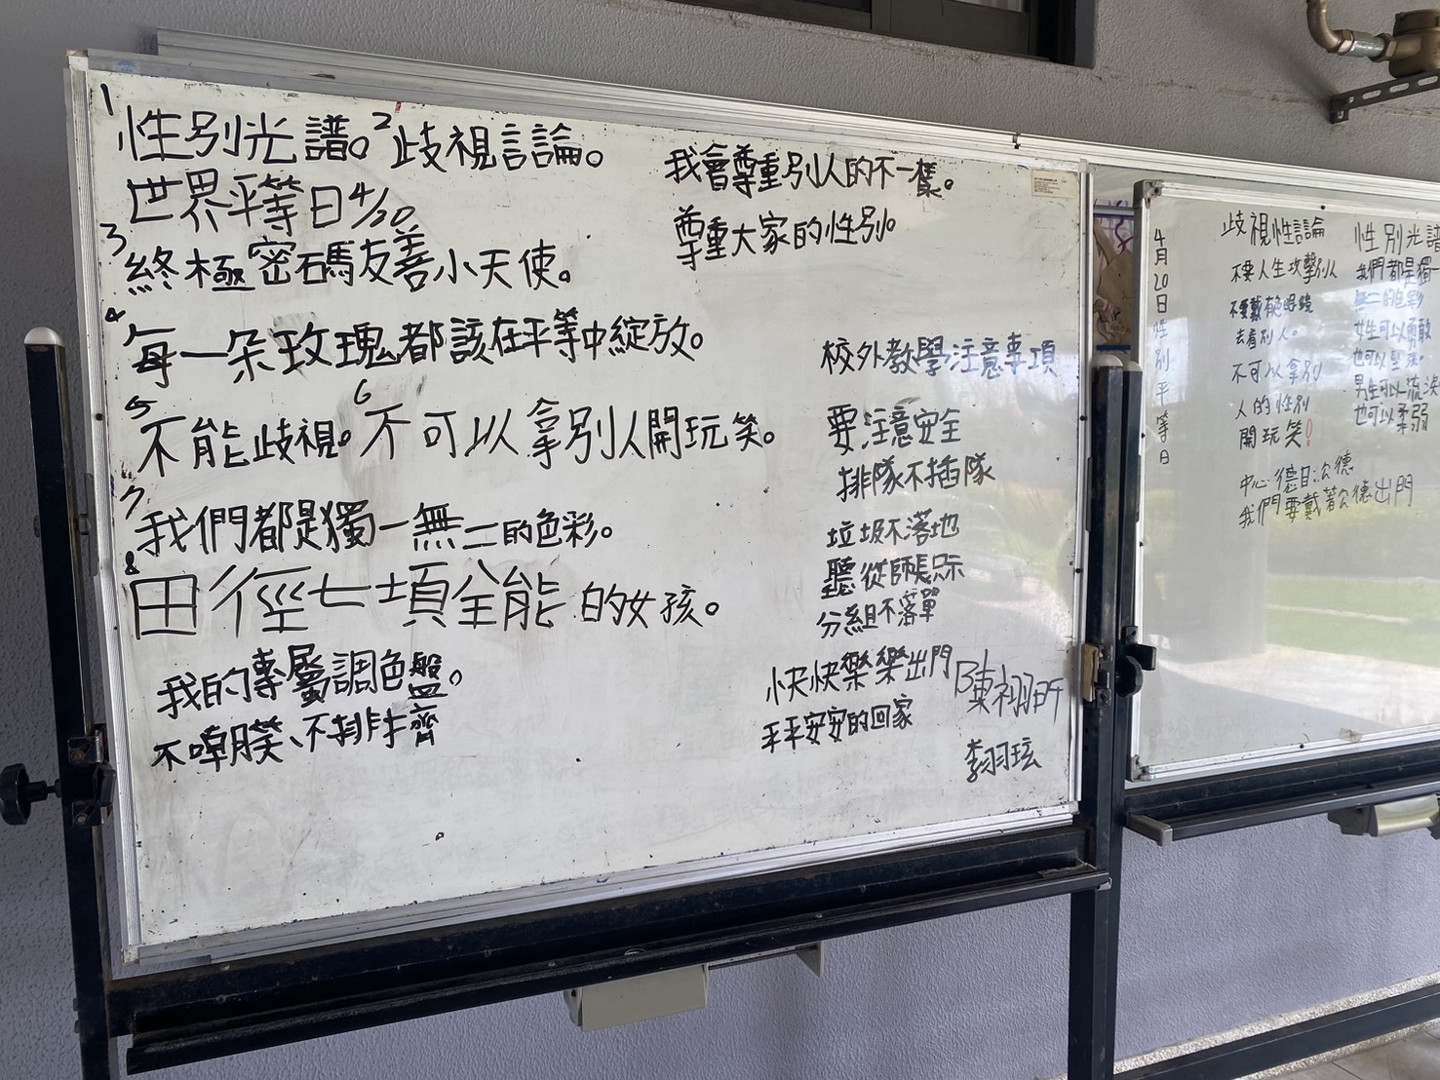 1 性別光譜。2 歧視言論。
世界平等日4/20
3 終極密碼友善小天使。
4 每一朵玫瑰都該在平等中綻放。
5 不能歧視。6 不可以拿別人開玩笑。
7 我們都是獨一無二的色彩。
8 田徑七項全能的女孩。
我的專屬調色盤。
不嘲笑、不排擠
我會尊重別人的不一樣。
尊重大家的性別。
校外教學注意事項
要注意安全
排隊不插隊
垃圾不落地
聽從師長指示
分組不落單
快快樂樂出門
平平安安的回家
陳祤昕
李羽玹
4月20日性別平等日
歧視性言論
不要人生攻擊別人
不要戴有色眼鏡
去看別人。
不可以拿別
人的性別
開玩笑!
中心德目:公德
我們要戴著公德出門
性別光譜
我們都是獨一
無二的色彩
女生可以勇敢
也可以堅強。
男生可以流淚
也可以柔弱